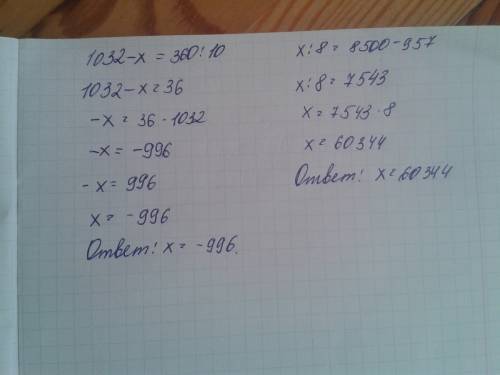 1032-x = 360:10
1032-x=36
-x = 36·1032
-x= -996
-x= 996
x= -996
Ответ: x= -996.
x:8= 8500-957
x:8= 7543
x= 7543·8
x= 60344
Ответ: x=60344